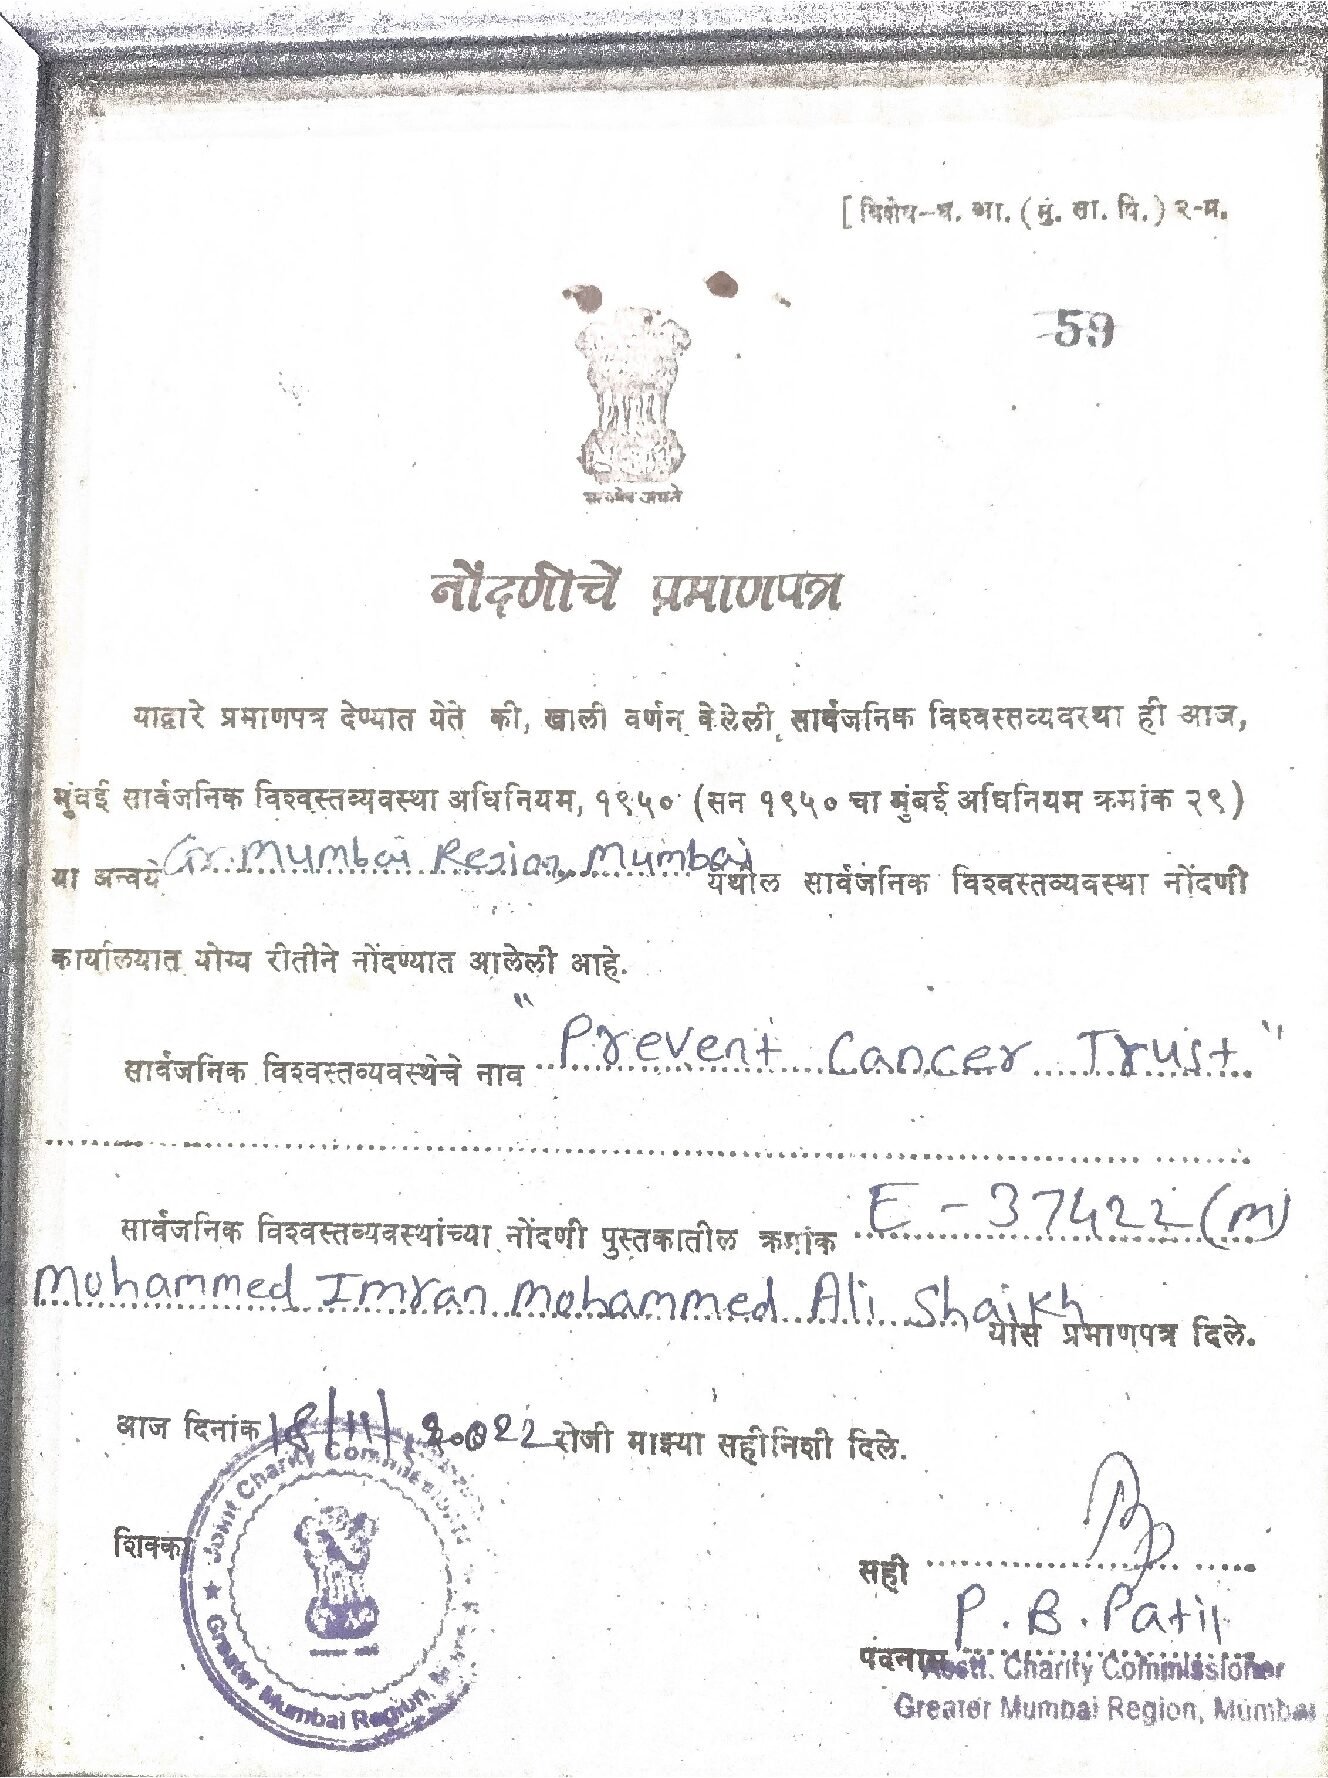 [ विशेष-ध. आ. (मुं. सा. वि.) २-म.
59
सत्यमेव जयते
नोंदणीचे प्रमाणपत्र
याद्वारे प्रमाणपत्र देण्यात येते की, खाली वर्णन केलेली सार्वजनिक विश्वस्तव्यवस्था ही आज,
मुंबई सार्वजनिक विश्वस्तव्यवस्था अधिनियम, १९५० (सन १९५० चा मुंबई अधिनियम क्रमांक २९)
या अन्वये Gr. Mumbai Region, Mumbai येथील सार्वजनिक विश्वस्तव्यवस्था नोंदणी
कार्यालयात योग्य रीतीने नोंदण्यात आलेली आहे.
सार्वजनिक विश्वस्तव्यवस्थेचे नाव "Prevent Cancer Trust"
सार्वजनिक विश्वस्तव्यवस्थांच्या नोंदणी पुस्तकातील क्रमांक E-37422 (M)
Mohammed Imran Mohammed Ali Shaikh यांस प्रमाणपत्र दिले.
आज दिनांक 18/11/2022 रोजी माझ्या सहीनिशी दिले.
शिक्का
Joint Charity Commissioner
★ Greater Mumbai Region,
सही
P. B. Patil
पदनाम
Asstt. Charity Commissioner
Greater Mumbai Region, Mumbai